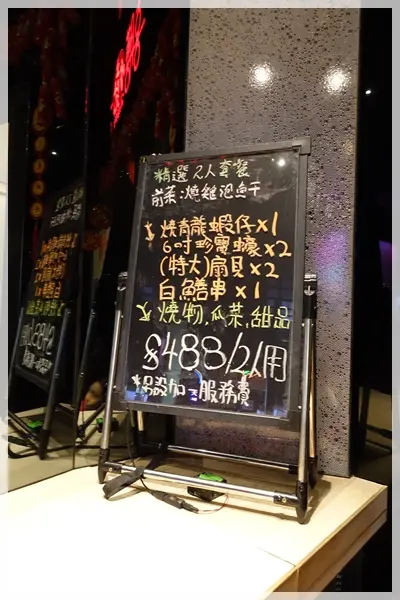 精選 2人套餐
前菜:燒雞泡魚干
燒青龍蝦仔×1
6吋珍寶蠔×2
(特大)扇貝×2
白鱔串×1
燒物,瓜菜,甜品
$488/2人用
*另設加一服務費